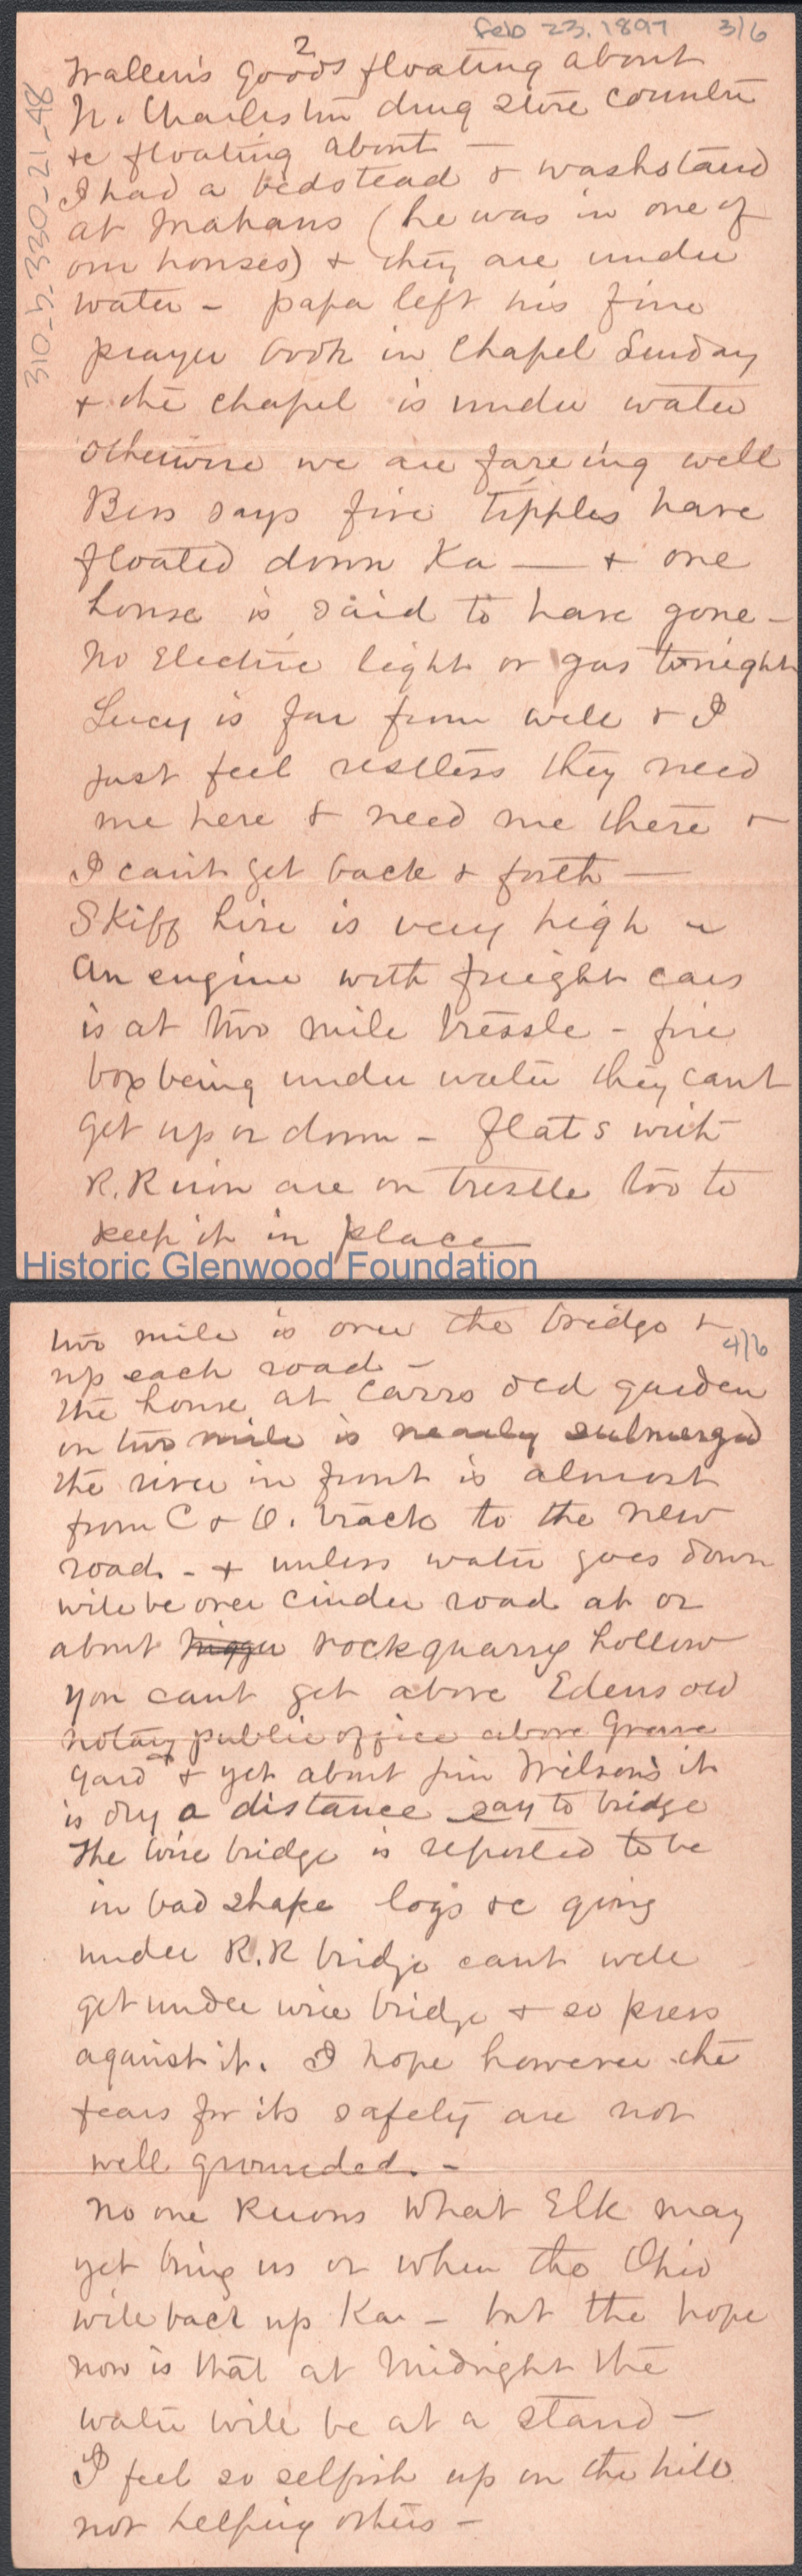 Feb 23, 1897 3/6
2
310-5-330-21-48
Wallen's goods floating about
N. Charleston drug store counter
&c floating about —
I had a bedstead & washstand
at Mahans (he was in one of
our houses) & they are under
water - papa left his fine
prayer book in Chapel Sunday
& the chapel is under water
otherwise we are fareing well
Bess says five tipples have
floated down Ka — & one
house is said to have gone -
No Electric light or gas tonight
Lucy is far from well & I
just feel restless they need
me here & need me there &
I can't get back & forth —
Skiff hire is very high -
An engine with freight cars
is at two mile tressle - fire
box being under water they cant
get up or down - flats with
R.R iron are on trestle too to
keep it in place
Historic Glenwood Foundation
4/6
two mile is over the bridge &
up each road -
the house at Carrs old garden
on two mile is nearly submerged
the river in front is almost
from C & O. track to the new
road. - & unless water goes down
will be over cinder road at or
about rock quarry hollow
you cant get above Edens old
notary public office above Grave
yard & yet about Jim Wilson's it
is dry a distance say to bridge
The wire bridge is reported to be
in bad shape logs &c going
under R.R bridge cant well
get under wire bridge & so press
against it. I hope however the
fears for its safety are not
well grounded. -
No one knows what Elk may
yet bring us or when the Ohio
will back up Ka - but the hope
now is that at Midnight the
water will be at a stand —
I feel so selfish up on the hill
not helping others -